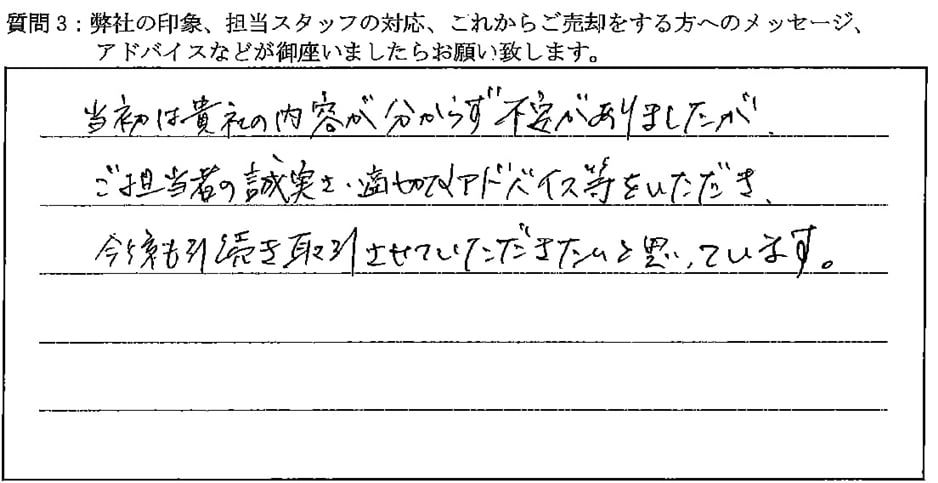 質問3：弊社の印象、担当スタッフの対応、これからご売却をする方へのメッセージ、
アドバイスなどが御座いましたらお願い致します。
当初は貴社の内容が分からず不安がありましたが、
ご担当者の誠実さ・適切なアドバイス等をいただき、
今後も引続き取引させていただきたいと思っています。